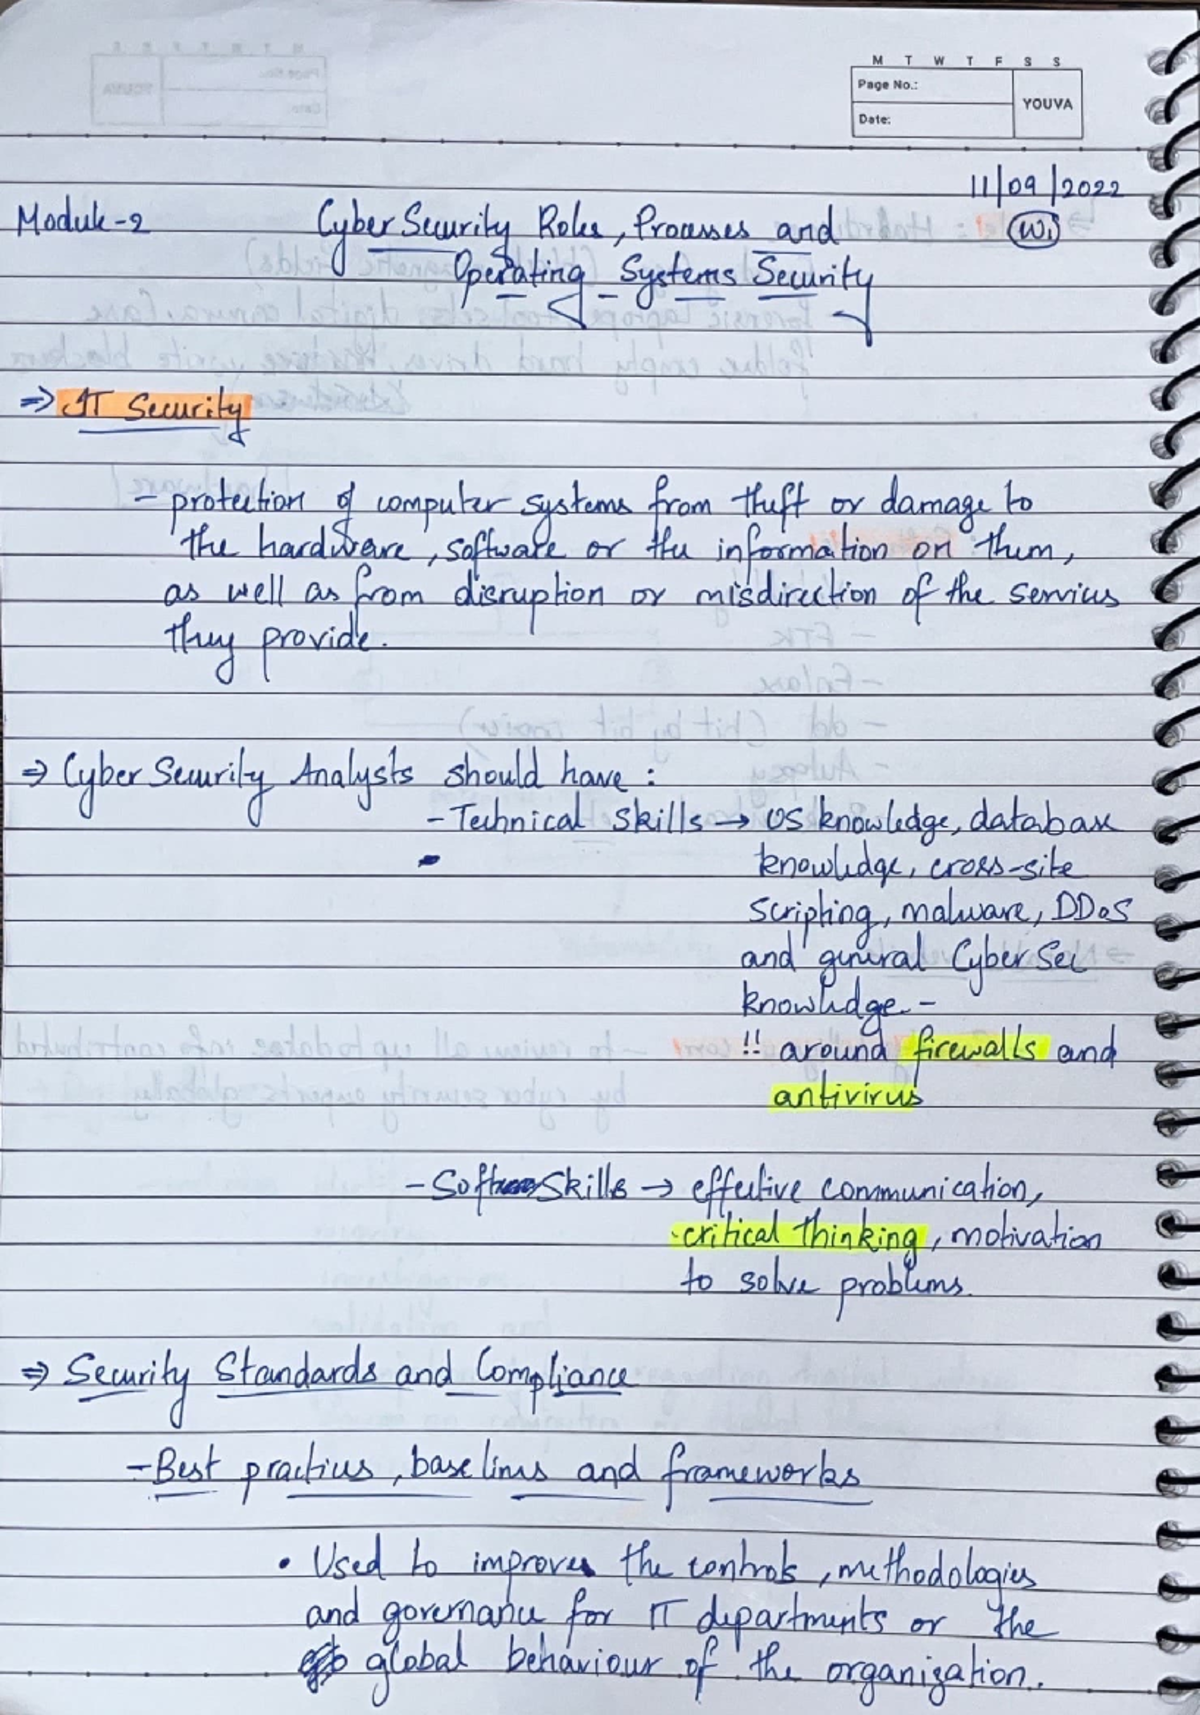 M T W T F S S
Page No.:
YOUVA
Date:
11/09/2022
Module-2 Cyber Security Roles, Processes and W1
Operating Systems Security
⇒ IT Security
- protection of computer systems from theft or damage to
the hardware, software or the information on them,
as well as from disruption or misdirection of the services
they provide.
⇒ Cyber Security Analysts should have :
- Technical skills → OS knowledge, database
knowledge, cross-site
scripting, malware, DDoS
and general CyberSec
knowledge -
!! around firewalls and
antivirus
- Soft Skills → effective communication,
critical thinking, motivation
to solve problems.
⇒ Security Standards and Compliance
- Best practices, baselines and frameworks
• Used to improve the controls, methodologies
and governance for IT departments or the
global behaviour of the organization.